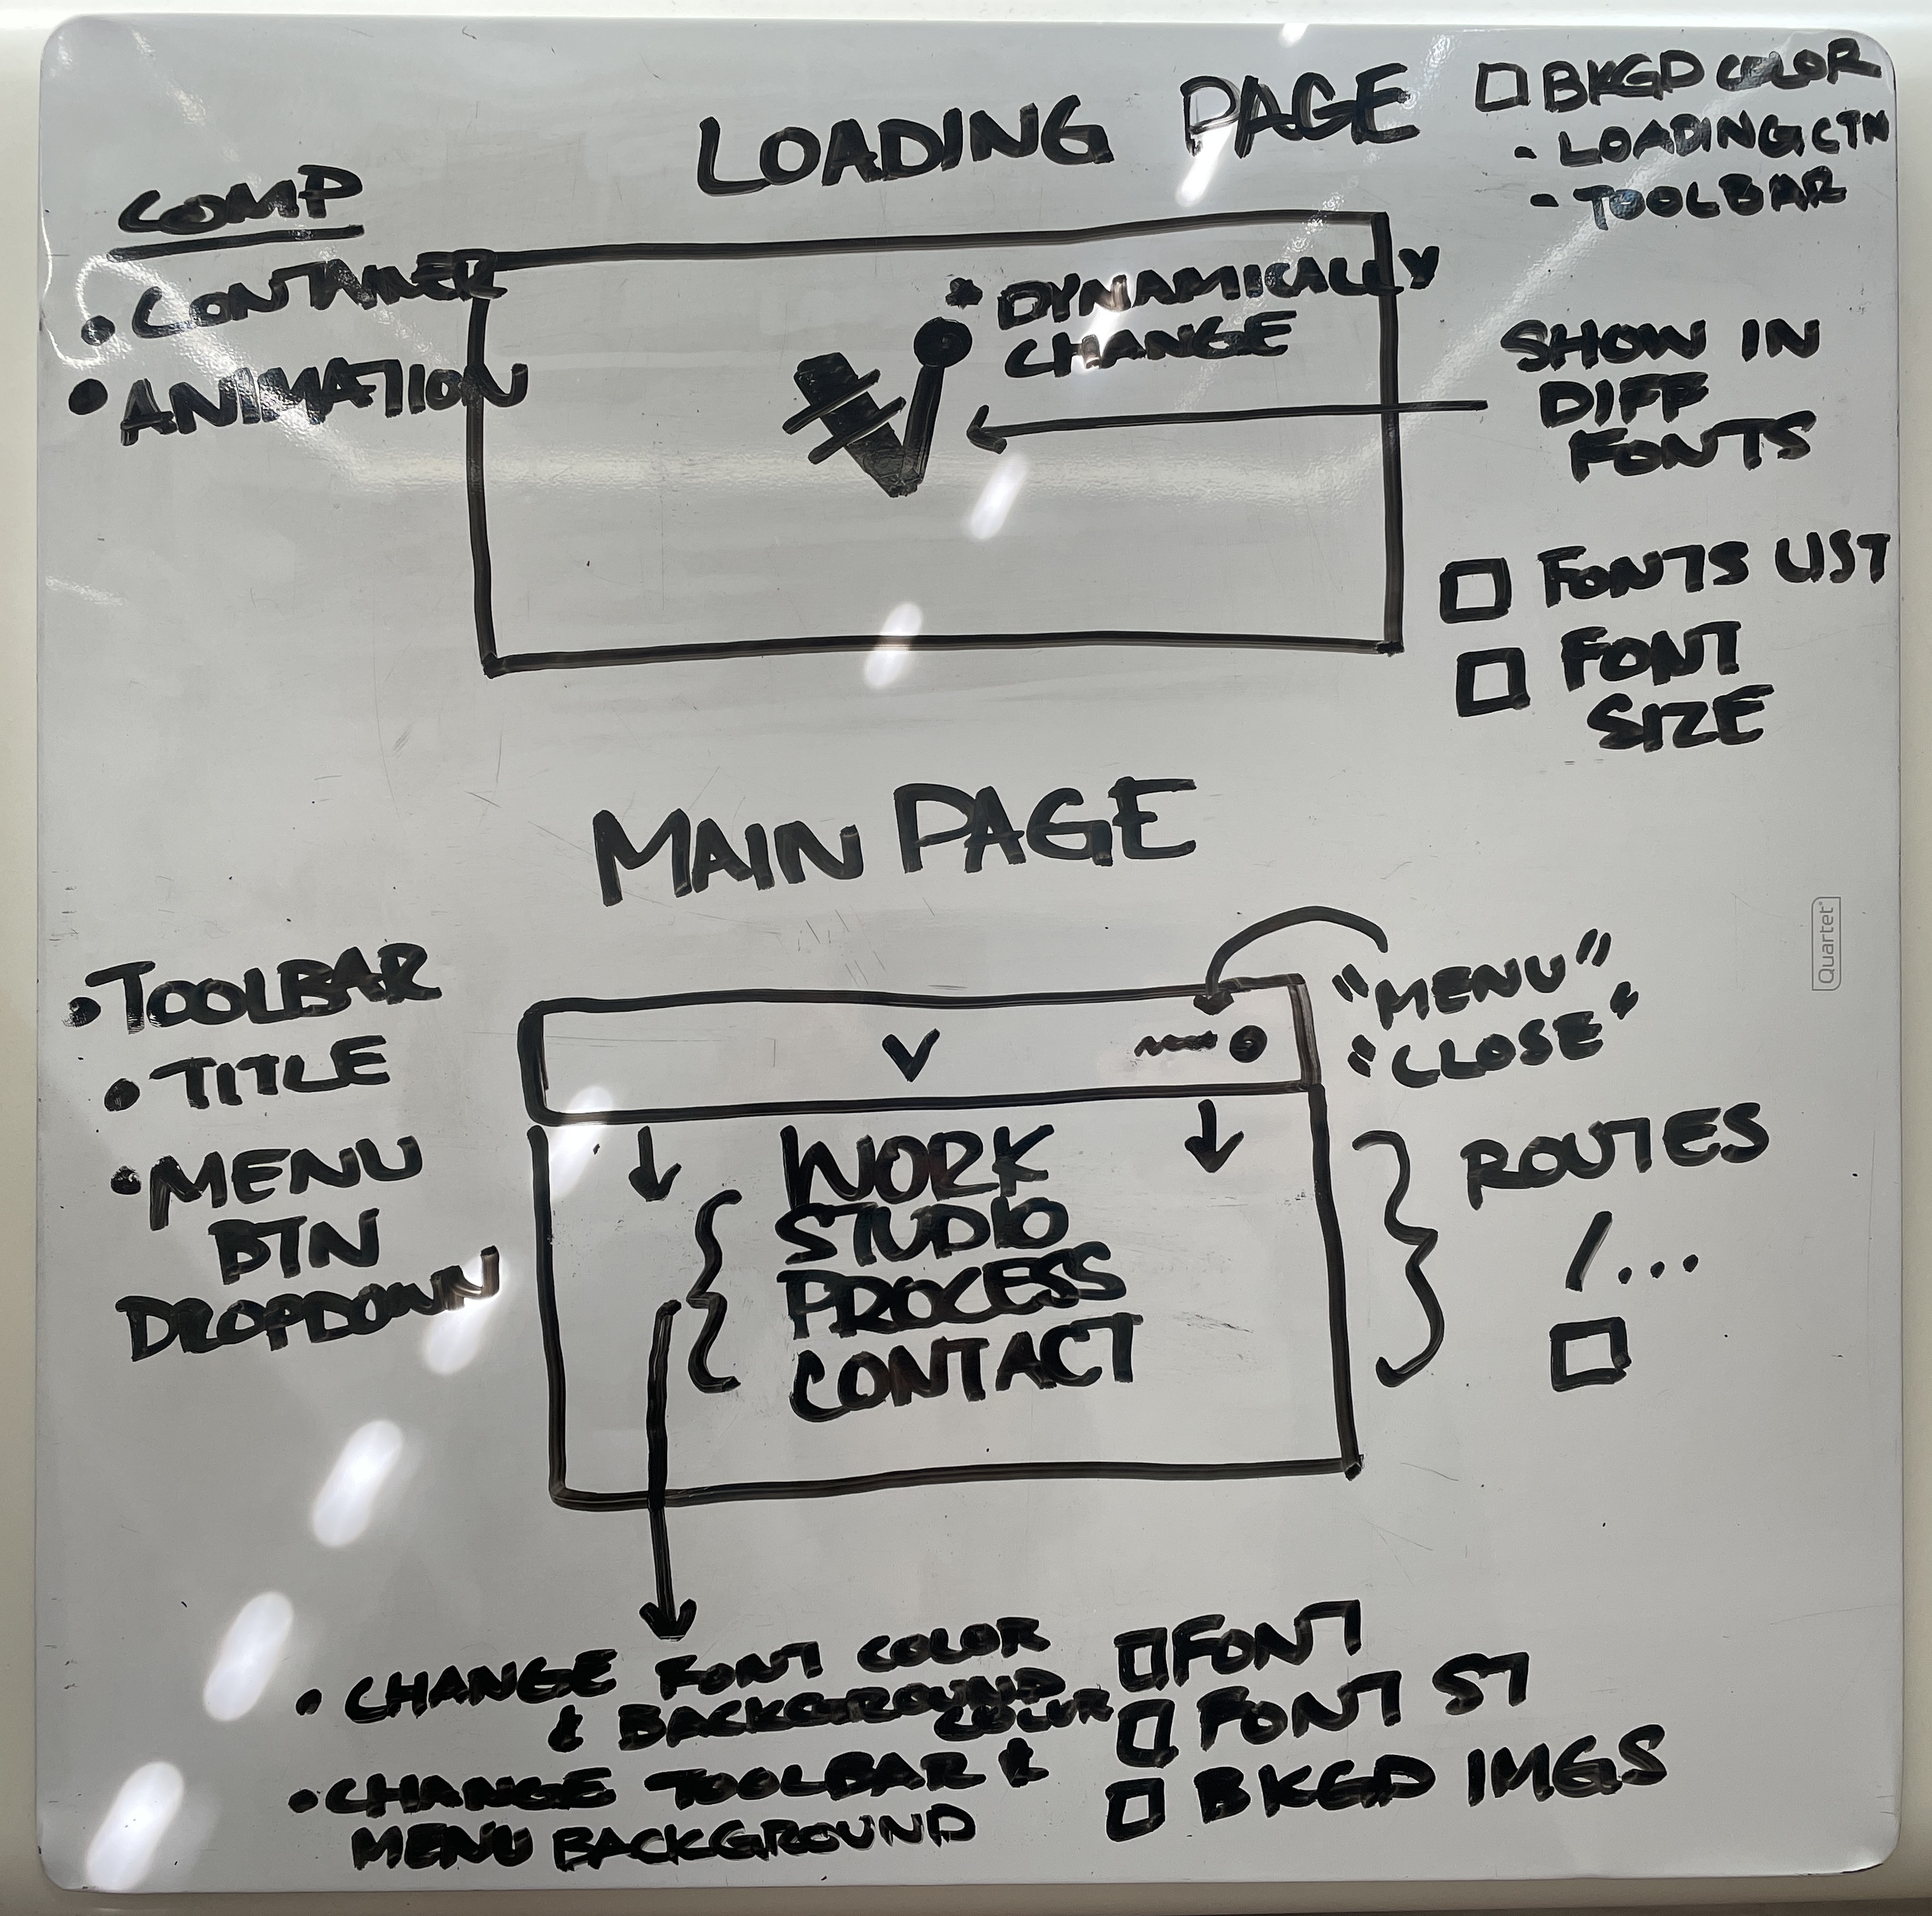 LOADING PAGE
□ BKGD COLOR
- LOADING CTN
- TOOLBAR
COMP
• CONTAINER
• ANIMATION
* DYNAMICALLY
CHANGE
V
SHOW IN
DIFF
FONTS
□ FONTS LIST
□ FONT
SIZE
MAIN PAGE
• TOOLBAR
• TITLE
• MENU
BTN
DROPDOWN
V
"MENU"
"CLOSE"
WORK
STUDIO
PROCESS
CONTACT
ROUTES
/...
□
• CHANGE FONT COLOR
& BACKGROUND
COLOR
• CHANGE TOOLBAR &
MENU BACKGROUND
□ FONT
□ FONT ST
□ BKGD IMGS
Quartet